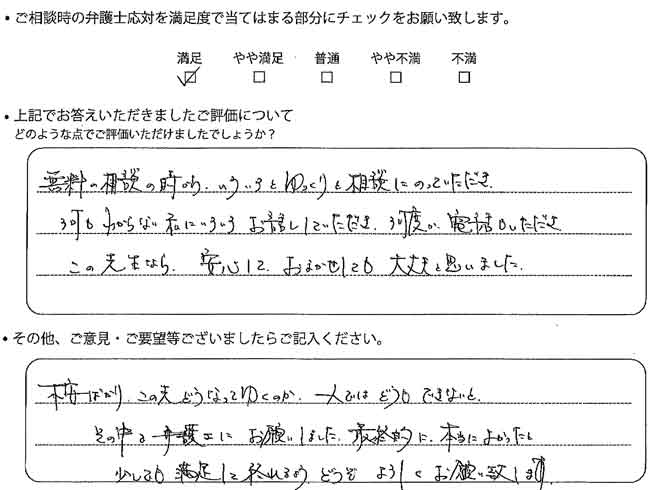 ・ご相談時の弁護士応対を満足度で当てはまる部分にチェックをお願い致します。
満足 やや満足 普通 やや不満 不満
・上記でお答えいただきましたご評価について
どのような点でご評価いただけましたでしょうか?
無料の相談の時から、いろいろとゆっくりと相談にのっていただき、
何もわからない私にいろいろお話ししていただき、何度か電話もいただき
この先生なら、安心して、おまかせしても大丈夫と思いました。
・その他、ご意見・ご要望等ございましたらご記入ください。
不安ばかり、この先どうなってゆくのか、一人ではどうもできないと、
その中で弁護士にお願いしました。最終的に、本当によかったと
少しでも満足して終れるよう、どうぞよろしくお願い致します。